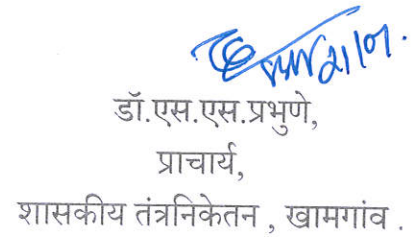 21/01.
डॉ.एस.एस.प्रभुणे,
प्राचार्य,
शासकीय तंत्रनिकेतन , खामगांव .